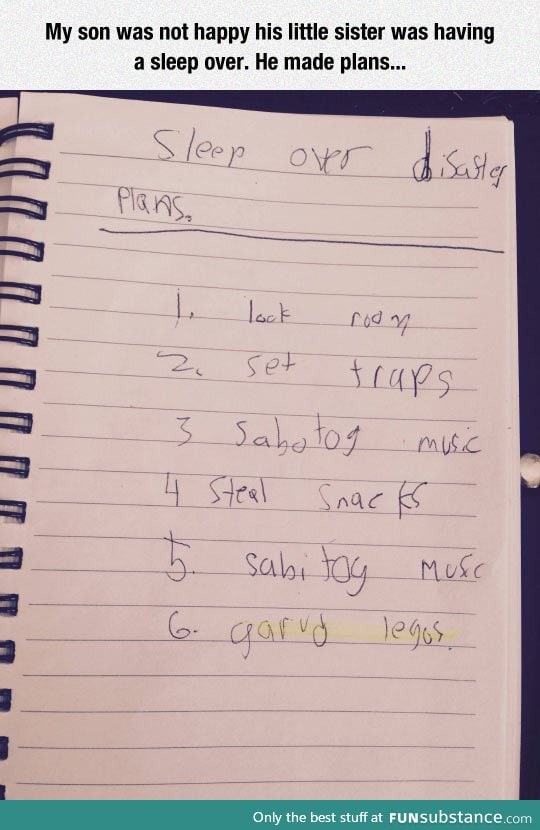 My son was not happy his little sister was having
a sleep over. He made plans...
Sleep over disaster
Plans.
1. lock room
2. set traps
3 Sabotog music
4 Steal Snacks
5. sabitog music
6. garud legos.
Only the best stuff at FUNsubstance.com